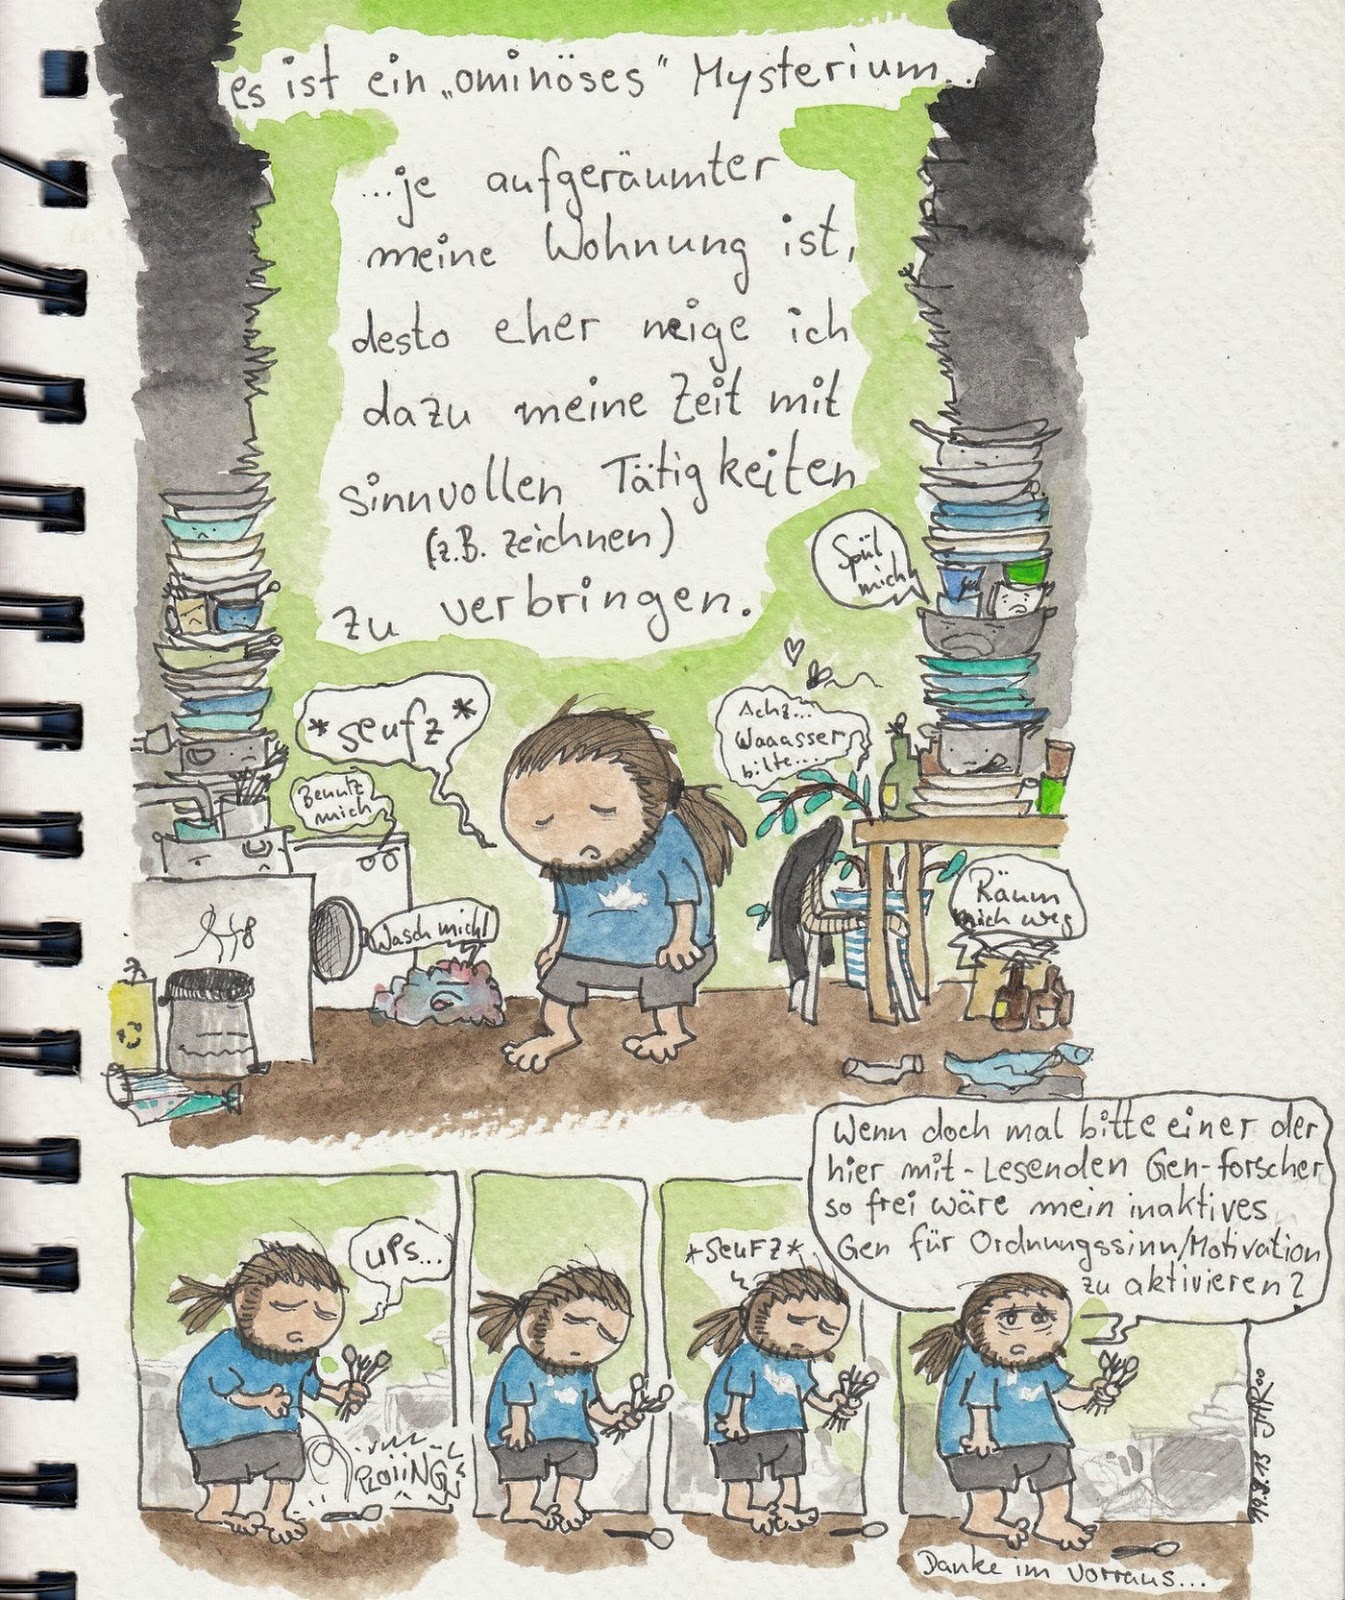 es ist ein „ominöses" Mysterium...
...je aufgeräumter
meine Wohnung ist,
desto eher neige ich
dazu meine Zeit mit
sinnvollen Tätigkeiten
(z.B. zeichnen)
zu verbringen.
Spül
mich
*seufz*
Achz...
Waaasser
bitte....
Benutz
mich
Wasch mich!
Räum
mich weg
ups...
PLOiiNG
*SEUFZ*
Wenn doch mal bitte einer der
hier mit-Lesenden Gen-forscher
so frei wäre mein inaktives
Gen für Ordnungssinn/Motivation
zu aktivieren?
Danke im vorraus...